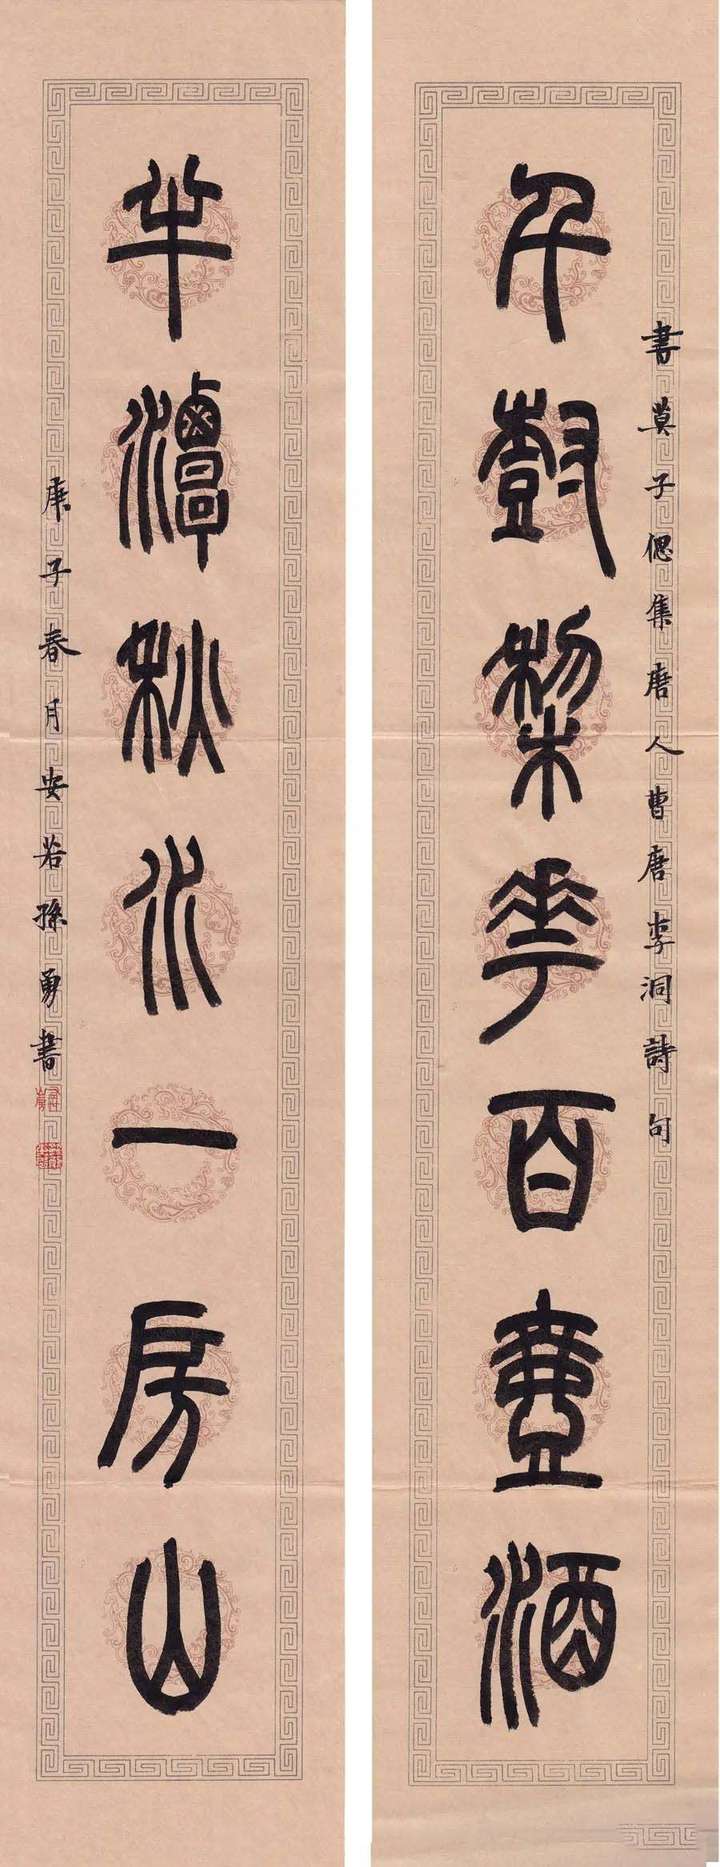 書莫子偲集唐人曹唐李洞詩句
千樹梨花百壺酒
半潭秋水一房山
庚子春月安若孫勇書